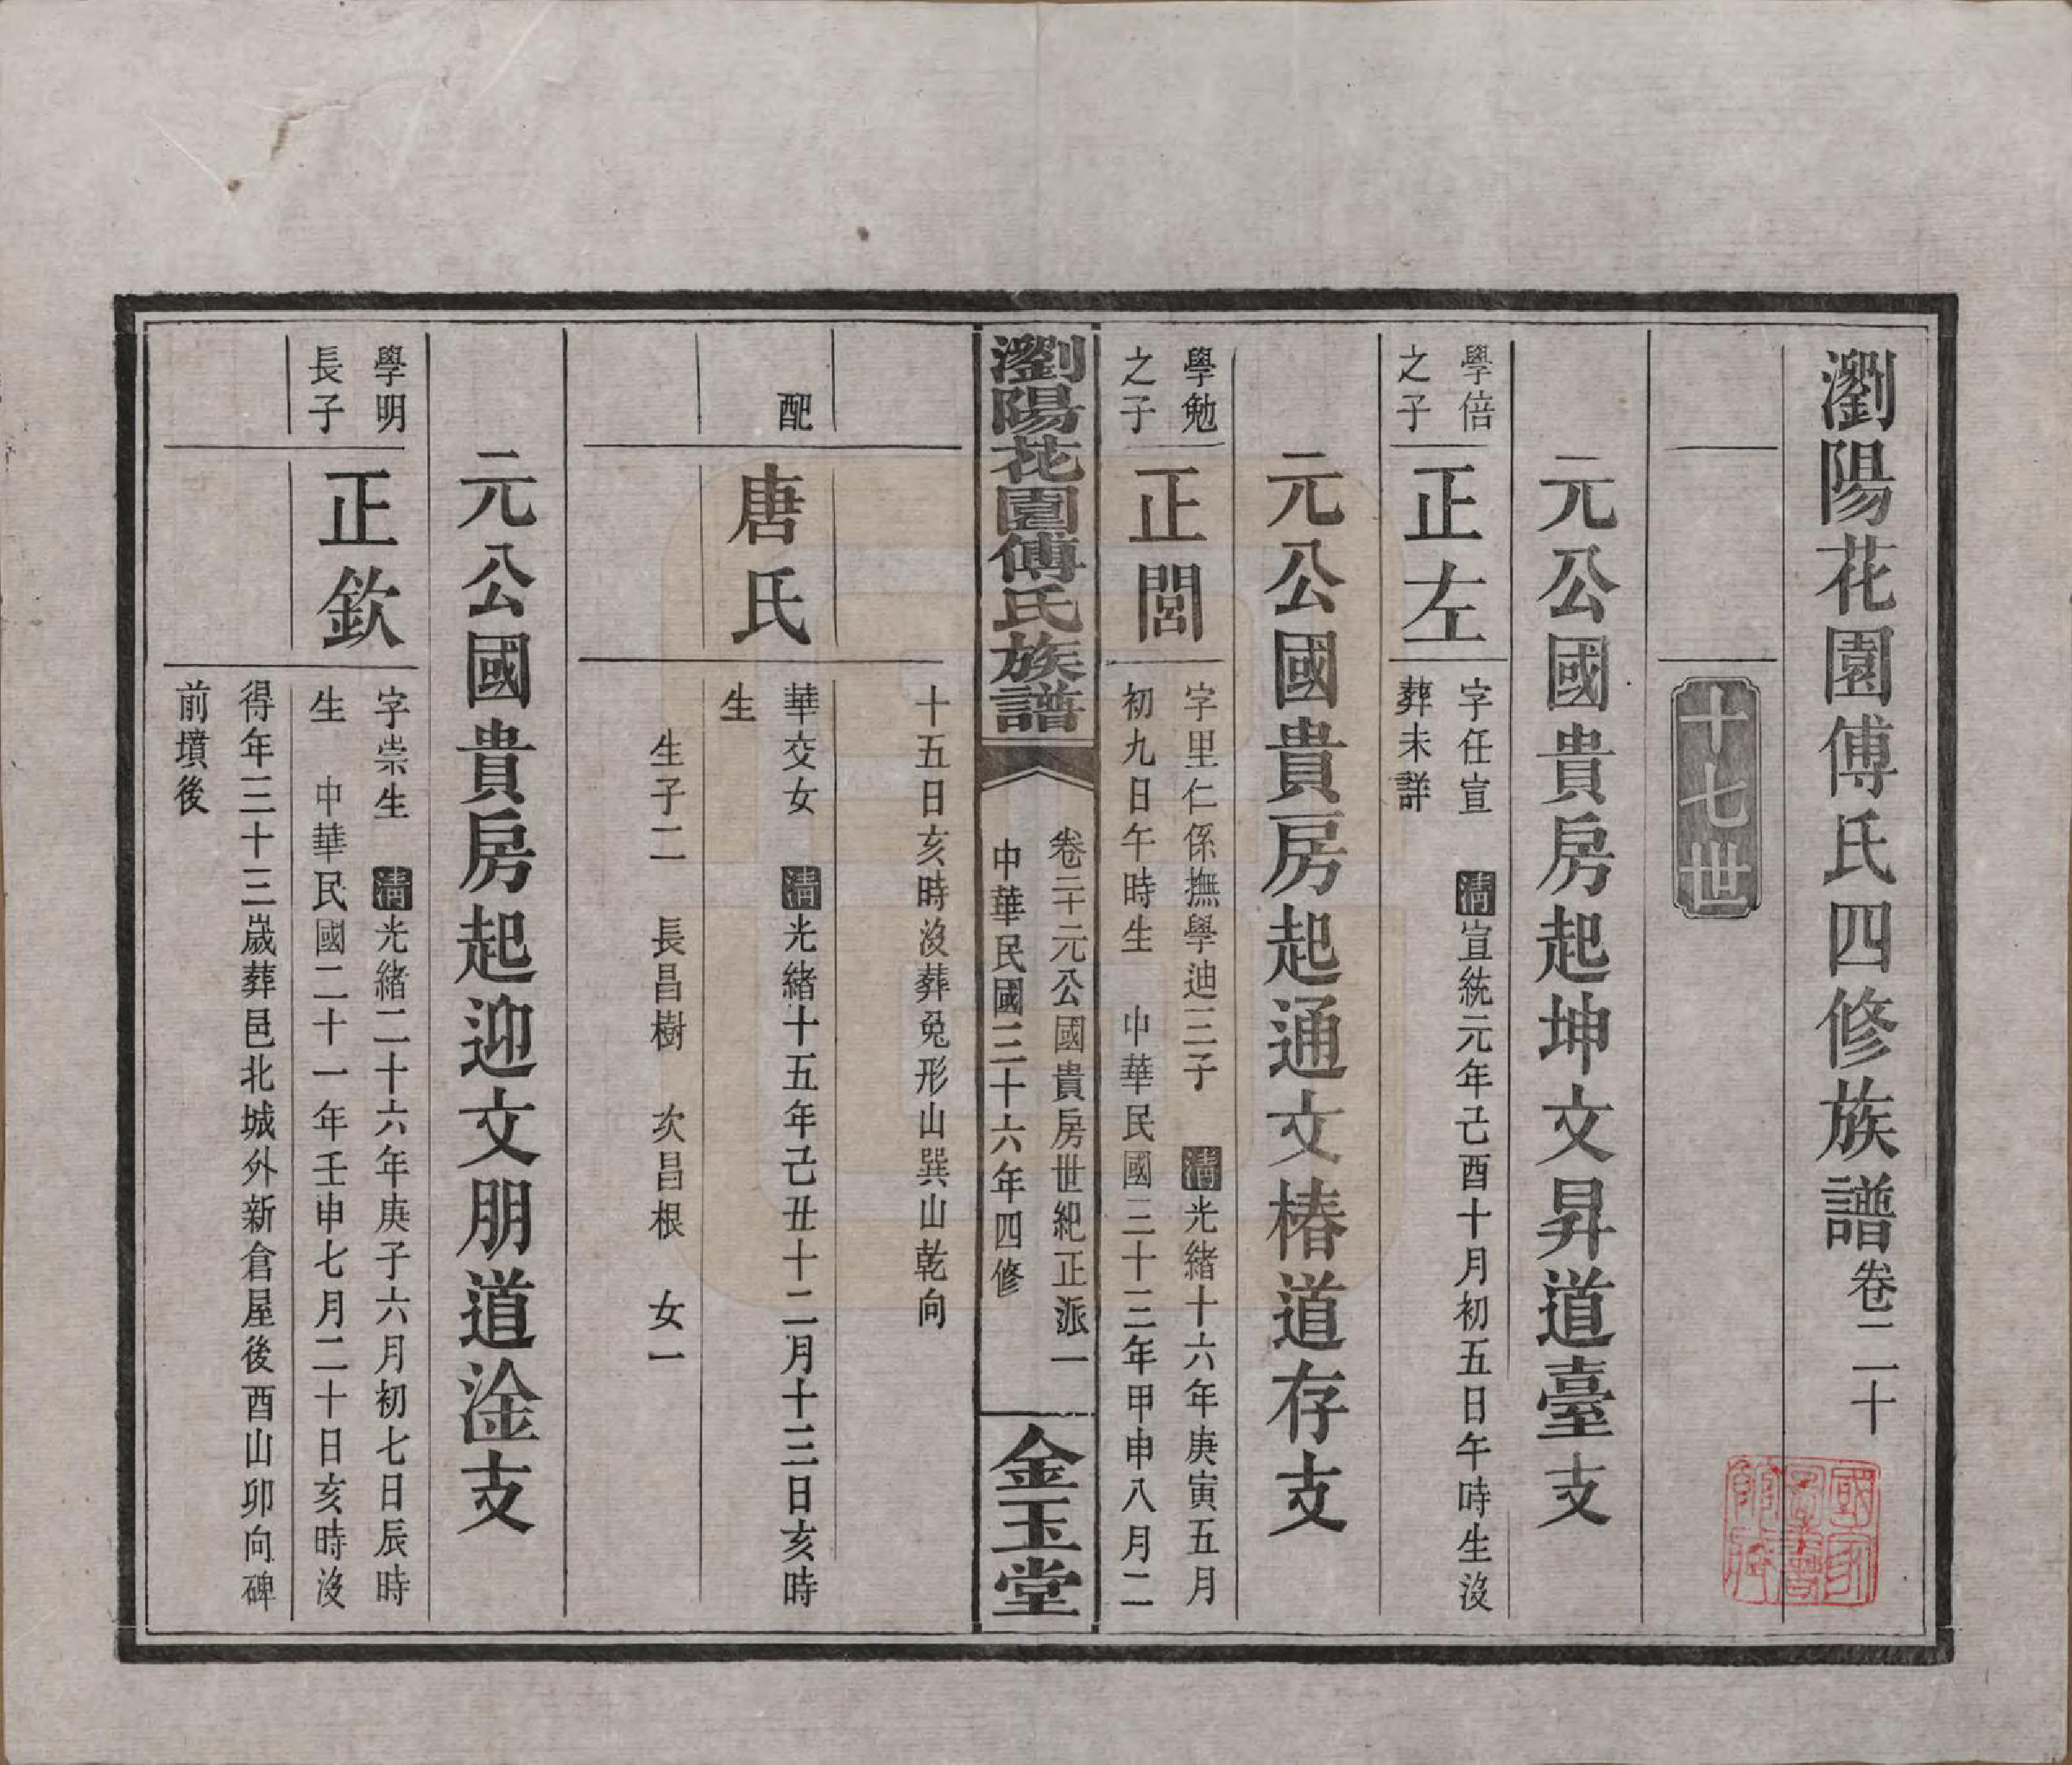 瀏陽花園傅氏四修族譜卷二十
十七世
元公國貴房起坤文昇道臺支
學倍
之子
正左
字任宣 清宣統元年己酉十月初五日午時生沒
葬未詳
元公國貴房起通文椿道存支
學勉
之子
正閭
字里仁係撫學迪三子 清光緒十六年庚寅五月
初九日午時生 中華民國三十三年甲申八月二
瀏陽花園傅氏族譜
卷二十元公國貴房世紀正派一
中華民國三十六年四修
金玉堂
十五日亥時沒葬兔形山巽山乾向
配
唐氏
華交女 清光緒十五年己丑十二月十三日亥時
生
生子二 長昌樹 次昌根 女一
元公國貴房起迎文朋道淦支
學明
長子
正欽
字崇生 清光緒二十六年庚子六月初七日辰時
生 中華民國二十一年壬申七月二十日亥時沒
得年三十三歲葬邑北城外新倉屋後酉山卯向碑
前墳後